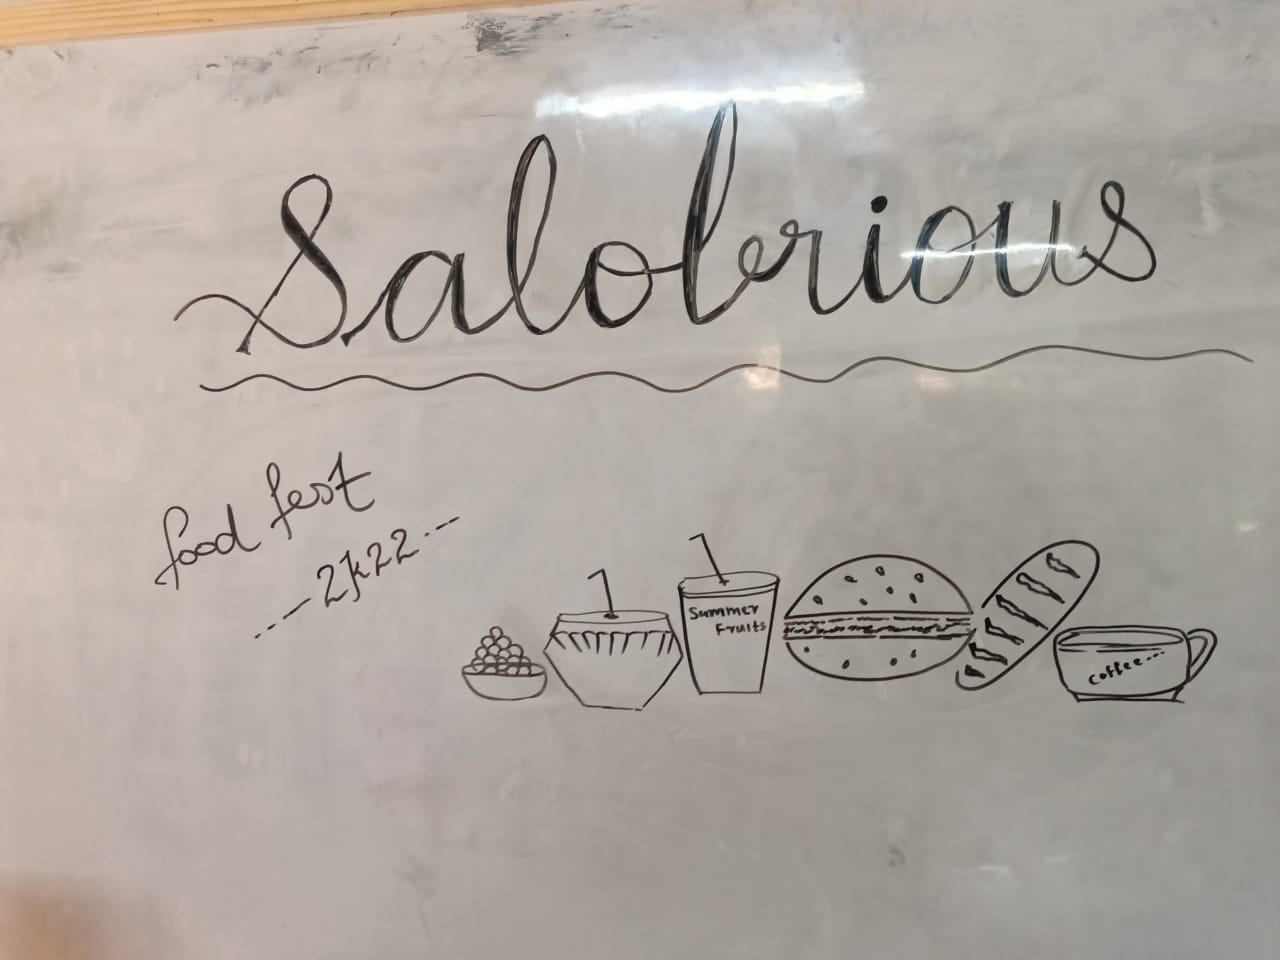 Salobrious
food fest
2k22
Summer
Fruits
coffee...